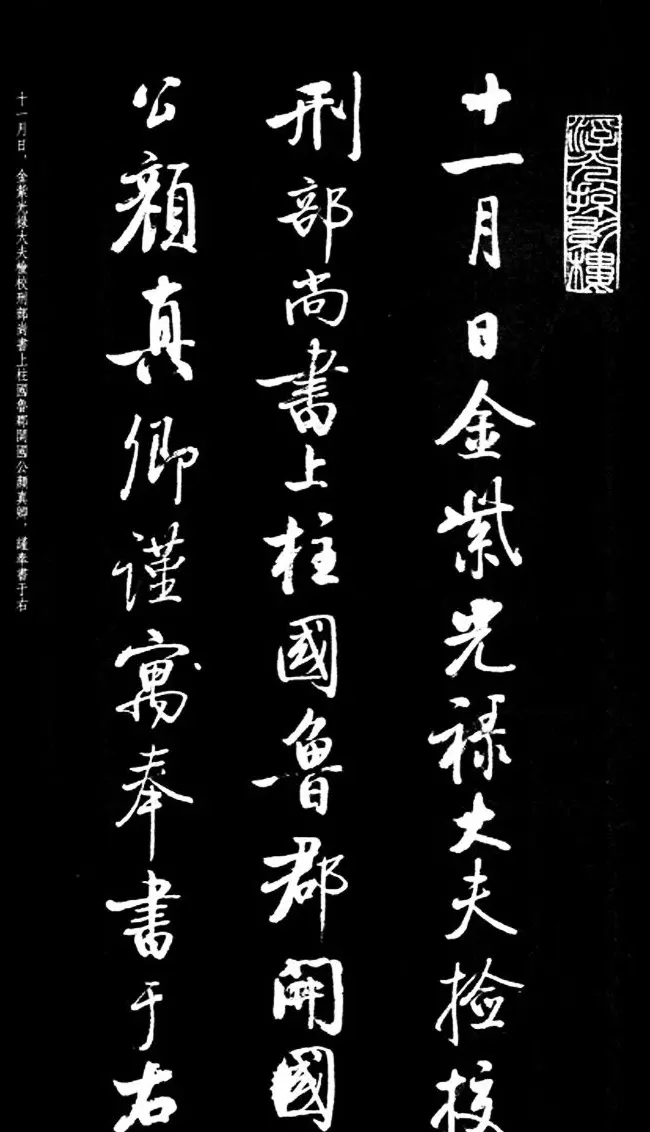 浮光掠影樓
十一月日金紫光禄大夫捡挍
刑部尚書上柱國魯郡開國
公顏真卿謹寓奉書于右
十一月日，金紫光祿大夫檢校刑部尚書上柱國魯郡開國公顏真卿，謹奉書于右